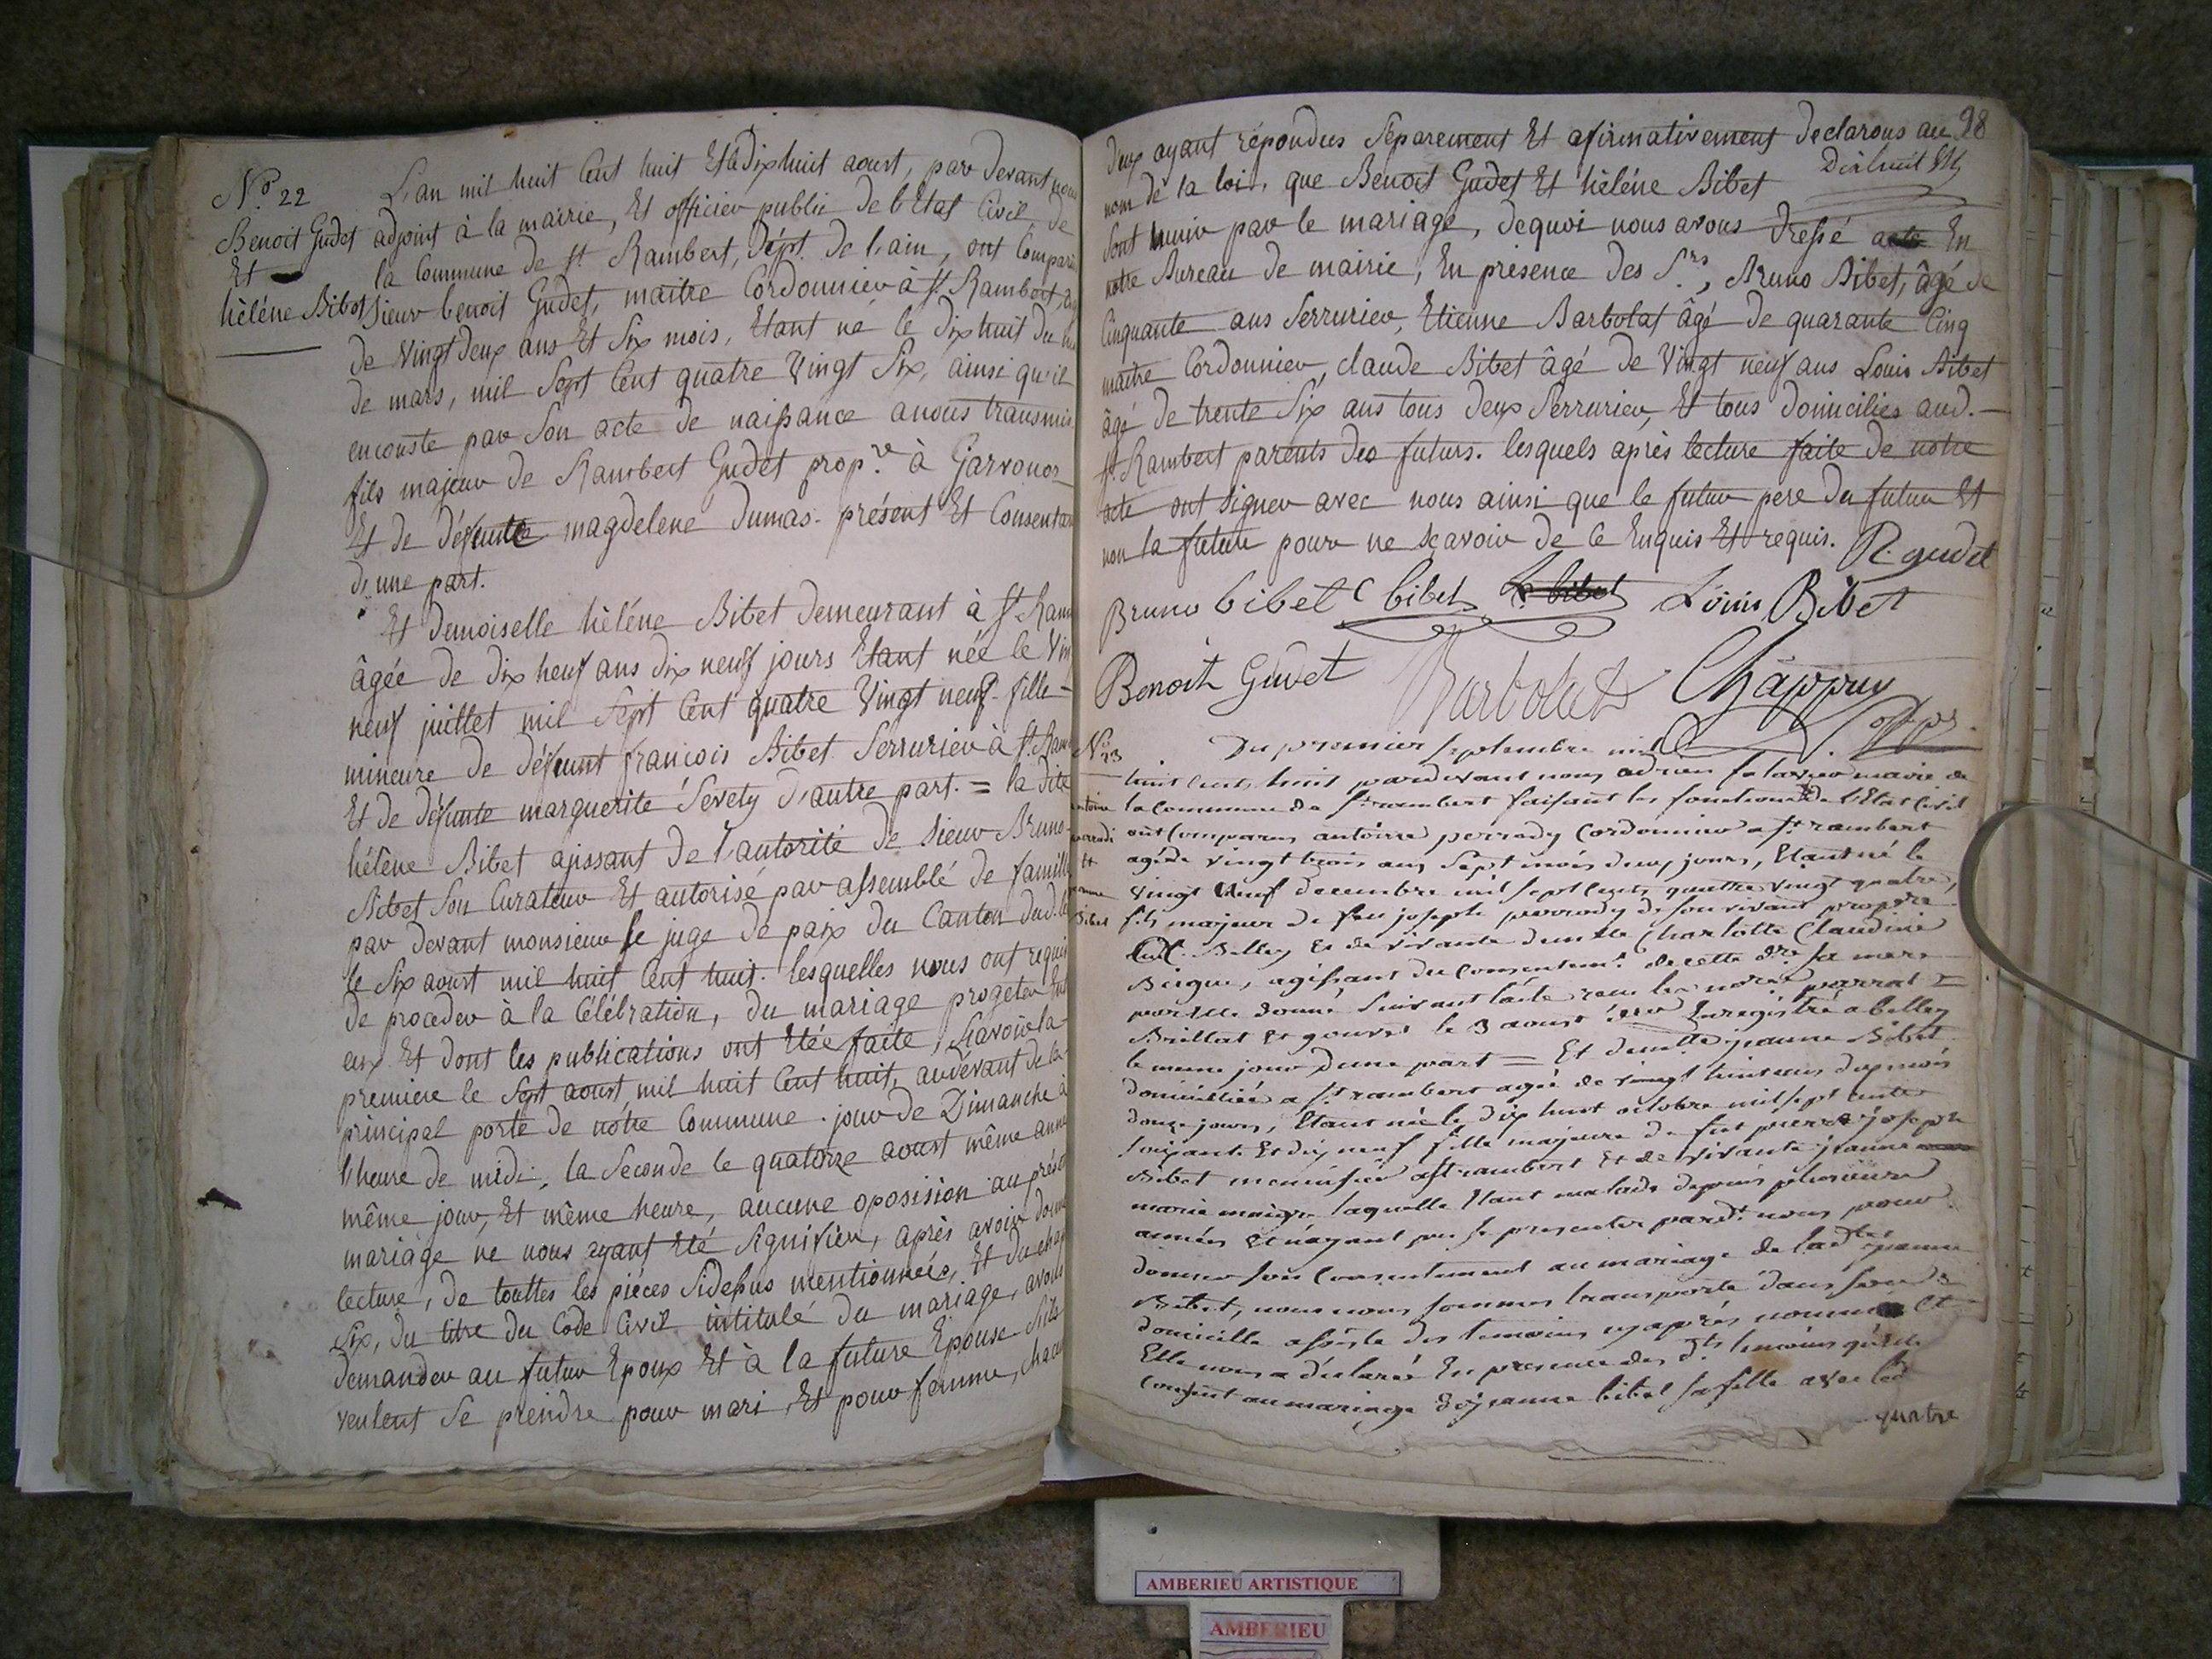 N.º 22
Benoit Gudet
Et
hèléne Bibet
L'an mil huit Cent huit Et le dix huit aoust, par devant nous
adjoint à la mairie, Et officier public de l'Etat Civil de
la Commune de st Rambert, dépt. de l'ain, ont Comparu
sieur benoit Gudet, maitre Cordonnier à st Rambert, agé
de Vingt deux ans Et Six mois, Etant né le dix huit du
de mars, mil Sept Cent quatre Vingt Six, ainsi qu'il
enconste par Son acte de naissance anous transmis
fils majeur de Rambert Gudet prop.re à Javornoz
Et de défunte magdelene dumas. présent Et Consentant
d'une part.
Et demoiselle hèléne Bibet demeurant à st Ram
âgée de dix neuf ans dix neuf jours Etant née le Vin
neuf juillet mil Sept Cent quatre Vingt neuf. fille
mineure de défunt françois Bibet Serrurier à st. Ram
Et de défunte marguerite Sevety d'autre part. = la dite
héléne Bibet ajissant de l'autorité de sieur Bruno
Bibet Son Curateur Et autorisé par assemblé de famille
par devant monsieur le juge de paix du Canton dud.
le Six aoust mil huit Cent huit. lesquelles nous ont requis
de proceder à la Célébration, du mariage progeter
eux Et dont les publications ont Etée faite, Scavoir la
premiere le Sept aoust mil huit Cent huit, audevant de la
principal porte de nôtre Commune. jour de Dimanche à
l'heure de midi, la Seconde le quatorze aoust même anné
même jour, Et même heure, aucune oposision au présent
mariage ne nous ayant Eté Signifier, après avoir donné
lecture, de touttes les piéces Sidessus mentionnés, Et du chap
Six, du titre du Code Civil intitulé du mariage, avons
demander au futur Epoux Et à la future Epouse Sils
veulent Se prendre pour mari, Et pour femme, chacun
98
deux ayant répondus Séparement Et afirmativement declarons au
nom de la loi, que Benoit Gudet Et hèléne Bibet
sont unir par le mariage, dequoi nous avons dressé acte En
notre Bureau de mairie, En présence des S.rs, Bruno Bibet, âgé de
Cinquante ans Serrurier, Etienne Barbolat âgé de quarante Cinq
maitre Cordonnier, claude Bibet âgé de Vingt neuf ans Louis Bibet
âgé de trente Six ans tous deux Serrurier, Et tous domiciliés aud.
st. Rambert parents des futurs. lesquels après lecture faite de notre
acte ont signer avec nous ainsi que le futur pere du futur Et
non la future pour ne scavoir de ce Enquis Et requis. R. gudet
Bruno bibet C bibet bibet Louis Bibet
Benoit Gudet Barbolat Chappuy
N.º 23
Du premier septembre mil
huit cent huit pardevant nous adrien maire de
la commune de st rambert faisant les fonctions de l'Etat Civil
ont comparus antoine perrody Cordonnier a st rambert
agé de vingt trois ans Sept mois deux jours, Etant né le
vingt Neuf decembre mil sept cents quatre vingt quatre,
fils majeur de feu joseph perrody de son vivant propre
Belley Et de vivante dem.lle Charlotte Claudine
agissant du consentem.t de cette d.re sa mere
par Elle donné Suivant l'acte recu les parrat
Brillat Et le 3 aoust Enregistré a belley
le meme jour d'une part = Et jeanne Bibet
domiciliée a st rambert agée de vingt huit ans dix mois
douze jours, Etant née le dix huit octobre mil sept cents
soixante Et dix neuf fille majeure de feu pierre joseph
Bibet menuisier a st rambert Et de vivante jeanne
marie laquelle Etant malade depuis plusieurs
années Et n'ayant pu se presenter pard.t nous pour
donner son Consentement au mariage de lad.te jeanne
Bibet, nous nous sommes transporté dans son
domicille assisté des temoins cyaprés nommés Et
Elle nous a déclaré En presence des d.ts temoins qu'elle
Consent au mariage de jeanne bibet sa fille avec led
quatre
AMBERIEU ARTISTIQUE
AMBERIEU